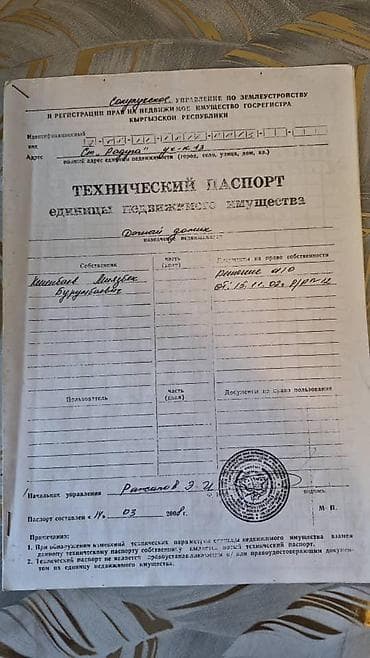 Сокулукское УПРАВЛЕНИЕ ПО ЗЕМЛЕУСТРОЙСТВУ
И РЕГИСТРАЦИИ ПРАВ НА НЕДВИЖИМОЕ ИМУЩЕСТВО ГОСРЕГИСТРА
КЫРГЫЗСКОЙ РЕСПУБЛИКИ
Идентификационный
код
Адрес Ст. "Радуга" уч-к 13
полный адрес единицы недвижимости (город, село, улица, дом, кв.)
ТЕХНИЧЕСКИЙ ПАСПОРТ
единицы недвижимого имущества
Дачный домик
назначение недвижимости
Собственник часть (доля) Документы на право собственности
Решение
от 15.11.02г.
Пользователь часть (доля) Документы на право пользования
Начальник управления
подпись
М. П.
Паспорт составлен « 14 » 03 2008 г.
Примечание:
1. При обнаружении изменений технических параметров единицы недвижимого имущества взамен
данному техническому паспорту собственнику выдается новый технический паспорт.
2. Технический паспорт не является правоустанавливающим и/или правоудостоверяющим докумен-
том на единицу недвижимого имущества.